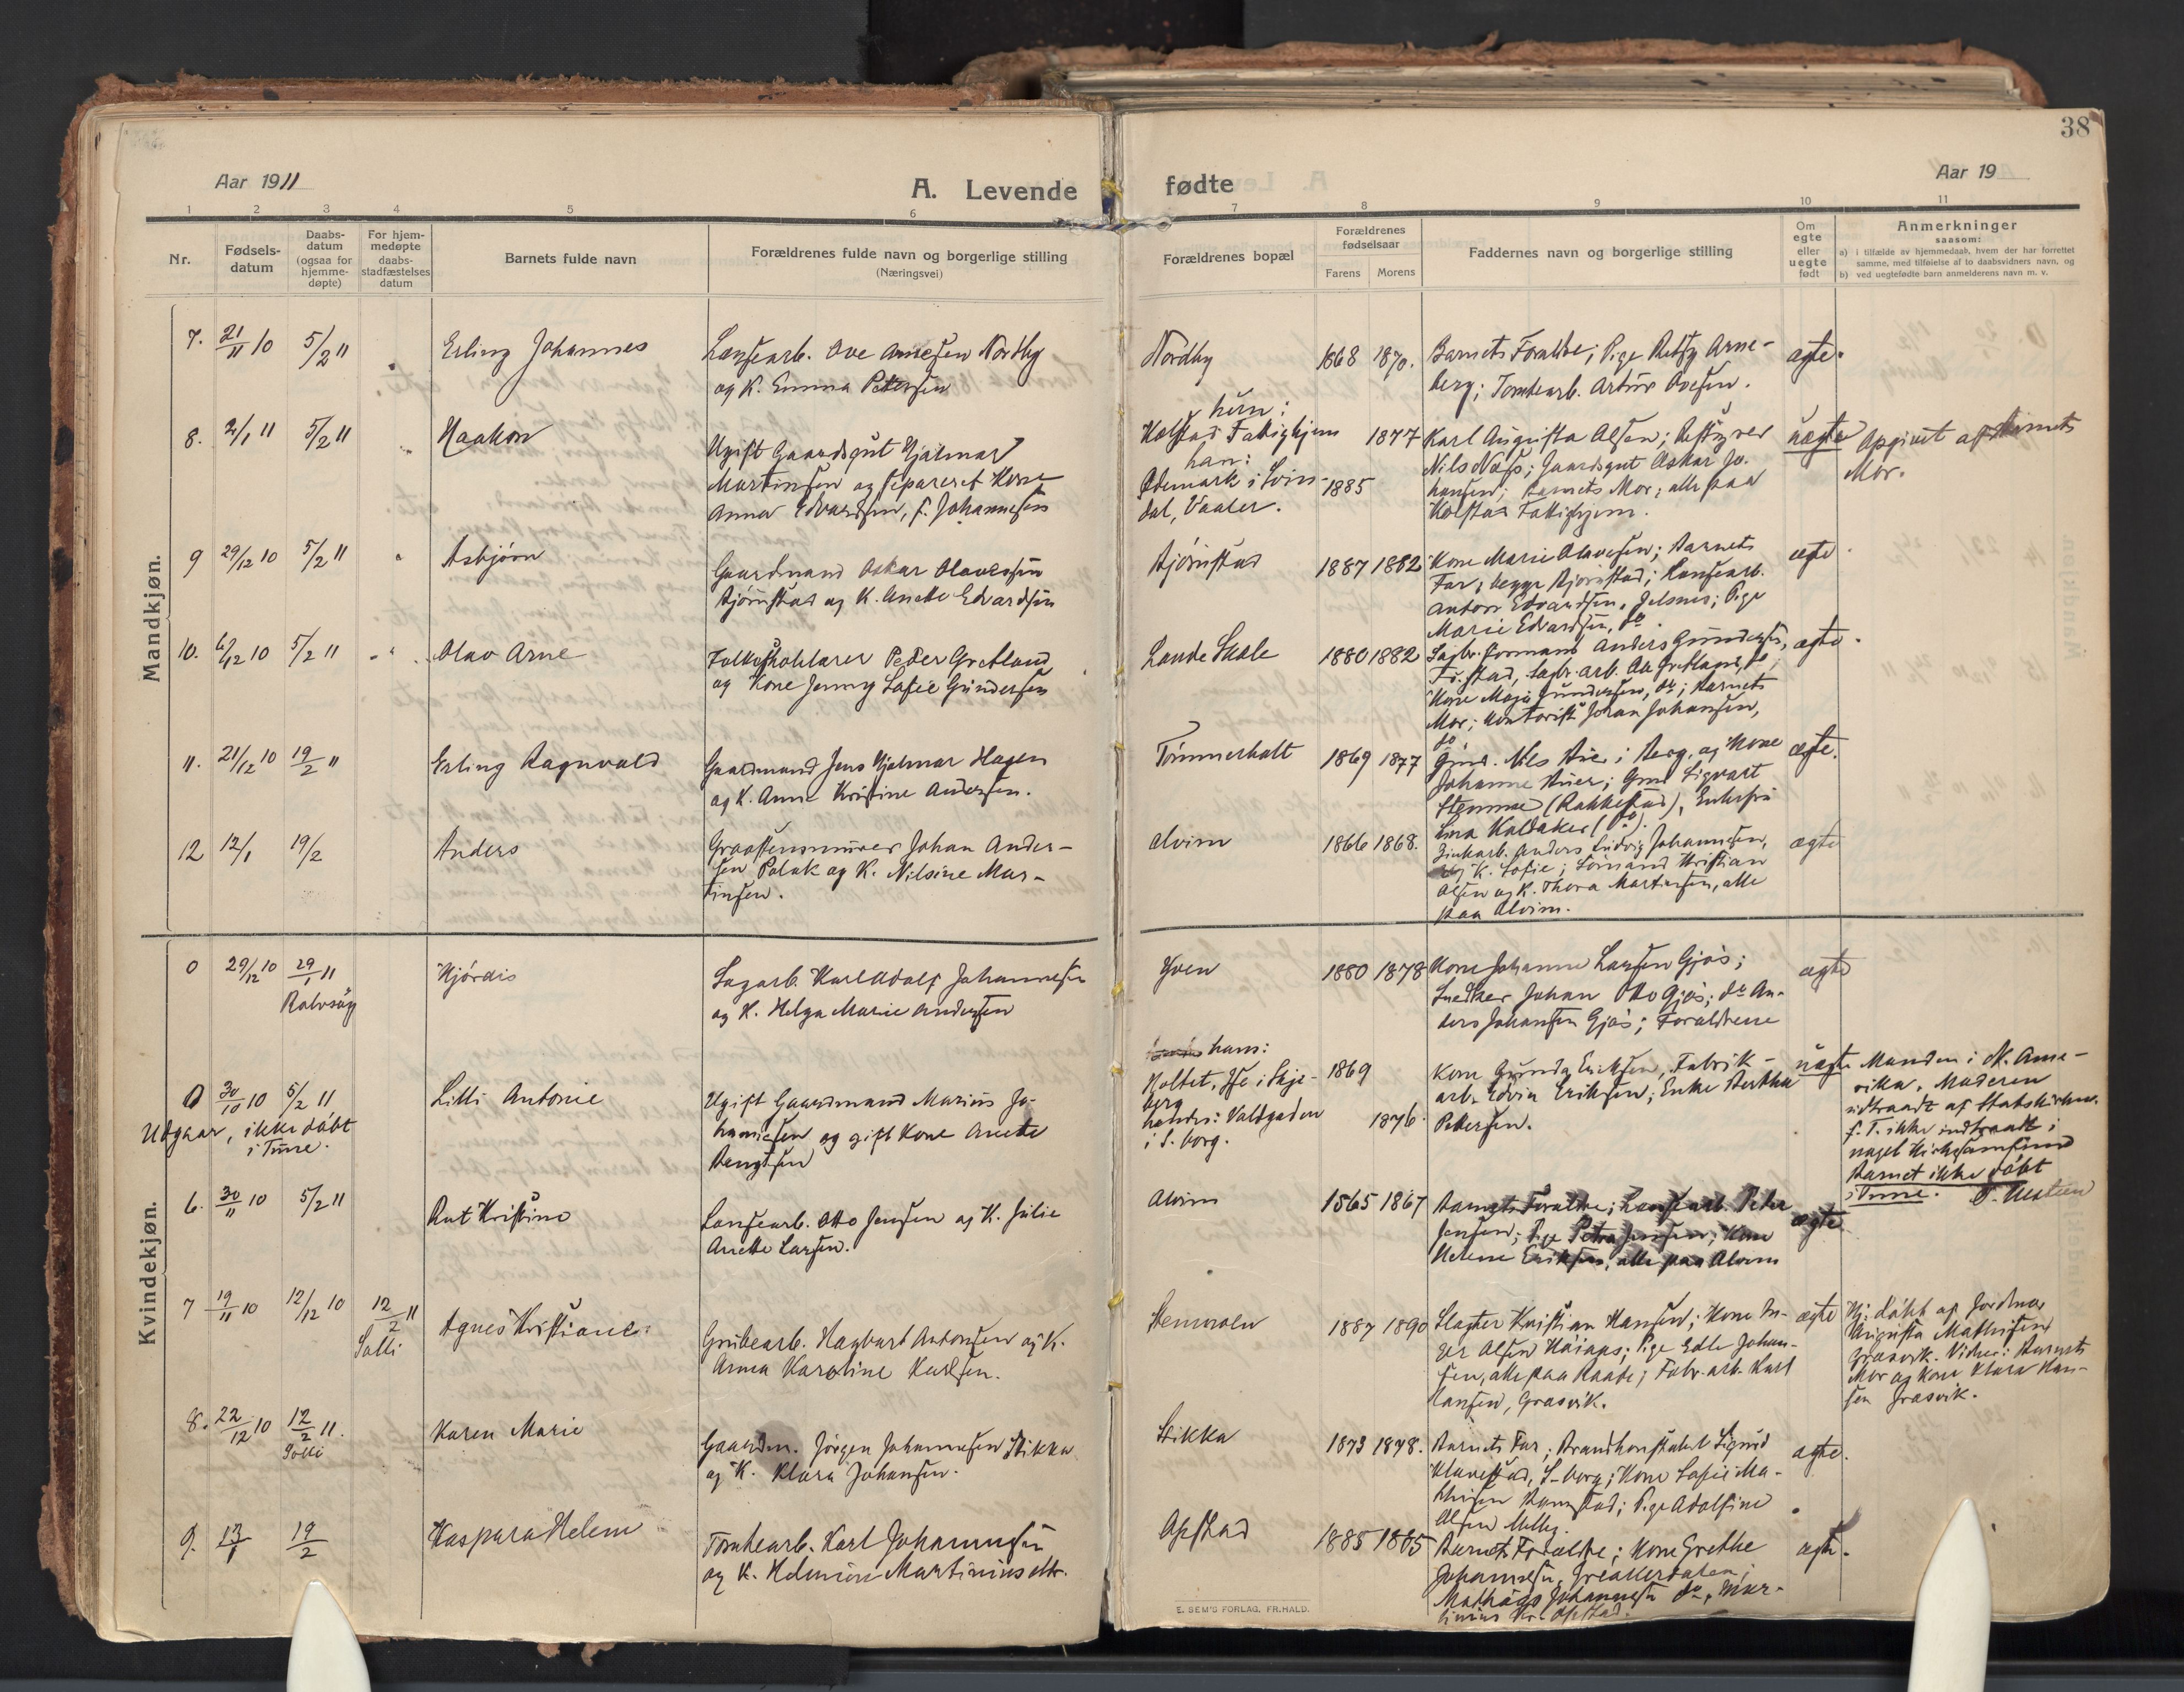 38
Aar 1911
A. Levende
fødte
Aar 19
1 2 3 4 5 6 7 8 9 10 11
Nr.
Fødsels-
datum
Daabs-
datum
(ogsaa for
hjemme-
døpte)
For hjem-
medøpte
daabs-
stadfæstelses
datum
Barnets fulde navn
Forældrenes fulde navn og borgerlige stilling
(Næringsvei)
Forældrenes bopæl
Forældrenes
fødselsaar
Farens Morens
Faddernes navn og borgerlige stilling
Om
egte
eller
uegte
født
Anmerkninger
saasom:
a) i tilfælde av hjemmedaab, hvem der har forrettet
samme, med tilføielse af to daabsvidners navn, og
b) ved uegtefødte barn anmelderens navn m. v.
Mandkjøn.
7. 21/11 10 5/2 11 Erling Johannes
Lensearb. Ove Arnesen Nordby
og K. Emma Pettersen
Nordby 1868 1870.
Barnets Forældre; Pige Betsy Arne-
berg; Tomtearb. Artur Ovesen.
egte.
8. 2/1 11 5/2 11 Haakon
Ugift Gaardsgut Hjalmar
Martinsen og separeret Kone
Anna Edvardsen, f. Johannesen
hun:
Kolstad Fattighjem 1877
han:
Ødemark i Svin-
dal, Vaaler. 1885
Karl Augusta Olsen; Bestyrer
Nils Næss; Gaardsgut Oskar Jo-
hansen; Barnets Mor; alle paa
Kolstad Fattighjem.
uegte
Opgivet af Barnets
Mor.
9 29/12 10 5/2 11 Asbjørn
Gaardmand Oskar Olavesen
Bjørnstad og K. Anette Edvardsen
Bjørnstad 1887 1882
Kone Marie Olavesen; Barnets
Far; begge Bjørnstad; Lensearb.
Anton Edvardsen, Jelsnes; Pige
Marie Edvardsen, do
egte
10. 6/12 10 5/2 11 Olav Arne
Folkeskolelærer Peder Gretland
og Kone Jenny Sofie Gundersen
Lande Skole 1880 1882
Sagbr. formand Anders Gundersen,
Fr.stad, sagbr. arb. Ole Gretland, do;
Kone Maja Gundersen, do; Barnets
Mor; Kontorist Johan Johansen,
do
egte.
11. 21/12 10 19/2 11 Erling Ragnvald
Gaardmand Jens Hjalmar Hagen
og K. Anna Kristine Andersen.
Tømmerholt 1869 1877
Gmd. Nils Buer i Berg, og Kone
Johanne Buer; Gmd Sigvart
Stemme (Rakkestad), Enkefru
Lina Koldaker (do).
egte.
12 12/1 19/2 Anders
Graastensmurer Johan Ander-
sen Polak og K. Nilsine Mar-
tinsen.
Alvim 1866 1868.
Zinkarb. Anders Ludvig Johannesen,
og K. Sofie; Sømand Kristian
Olsen og K. Thora Martinsen, alle
paa Alvim.
egte
Kvindekjøn.
0 29/12 10 29/1 11
Rolvsøy
Hjørdis
Sagarb. Karl Adolf Johannesen
og K. Helga Marie Andersen
Hven 1880 1878
Kone Johanne Larsen Gjøs;
Snedker Johan Otto Gjøs; do An-
ders Johansen Gjøs; Forældrene
egte
0 30/10 10 5/2 11
Udgaar, ikke døbt
i Tune.
Lilli Antonie
Ugift Gaardmand Marius Jo-
hannesen og gift Kone Anette
Bengtsen
hans:
Holtet, Ise i Skje-
berg 1869
hendes: Voldgaden
i S. borg. 1876.
Kone Gunda Eriksen, Fabrik-
arb. Edvin Eriksen; Enke Bertha
Petersen.
uegte
Manden i N. Ame-
rika. Moderen
udtraadt af Statskirken.
f. T. ikke indtraadt i
noget Kirkesamfund
Barnet ikke døbt
i Tune.
6. 30/11 10 5/2 11 Rut Kristine
Lensearb. Otto Jensen og K. Julie
Anette Larsen.
Alvim 1865 1867
Barnets Forældre; Lensearb. Peter
Jensen; Pige Petra Jensen; Kone
Helene Eriksen, alle paa Alvim
egte
7 19/11 10 12/12 10 12/2 11
Solli
Agnes Kristiane.
Grubearb. Hagbart Antonsen og K.
Anna Karoline Karlsen.
1887 1890
Slagter Kristian Hansen; Kone
Olsen Høiaas; Pige Edle Johan-
sen, alle paa Raade; Fabr. arb. Karl
Hansen, Græsvik.
egte
Hj. døbt af Jordmor
Augusta Mathisen
Græsvik. Vidner: Barnets
Mor og Kone Klara Han-
sen Græsvik.
8. 22/12 10 12/2 11.
Solli
Karen Marie
Gaardm. Jørgen Johannesen Stikka
og K. Klara Johansen.
Stikka 1873 1878.
Barnets Far; Brandkonstabel Sigurd
Klavestad, S-borg; Kone Sofie Ma-
thisen Ramstad; Pige Adolfine
Olsen
egte.
9. 13/1 19/2 Kaspara Helene
Tomtearb. Karl Johannesen
og K. Helmine Martinius dtr.
Opstad 1885 1885
Barnets Forældre; Kone Grethe
Johannesen, Greaakerdalen;
Mathias Johannesen do, Mar-
tinius Kr. Opstad.
egte.
E. SEM'S FORLAG, FR.HALD.